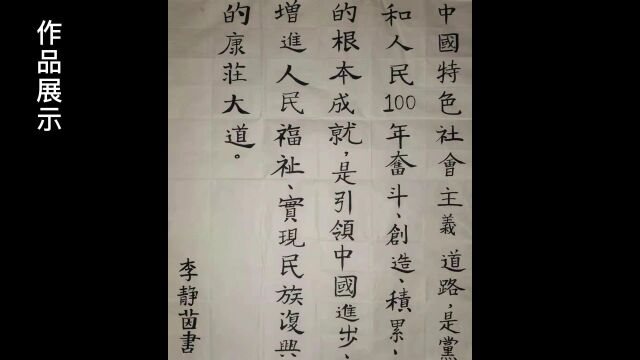 作品展示
中國特色社會主義道路,是黨
和人民100年奮斗、創造、積累、
的根本成就,是引領中國進步、
增進人民福祉、實現民族復興
的康莊大道。
李靜茵書